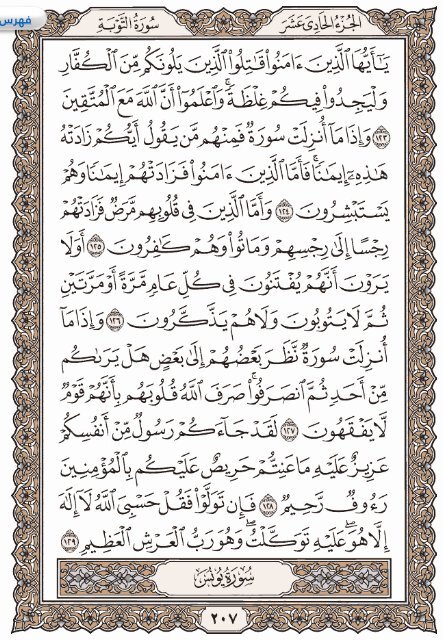 فهرس
سُورَةُ التَّوْبَةِ
الجُزْءُ الحَادِى عَشَرَ
يَـٰٓأَيُّهَا ٱلَّذِينَ ءَامَنُوا۟ قَـٰتِلُوا۟ ٱلَّذِينَ يَلُونَكُم مِّنَ ٱلْكُفَّارِ
وَلْيَجِدُوا۟ فِيكُمْ غِلْظَةً ۚ وَٱعْلَمُوٓا۟ أَنَّ ٱللَّهَ مَعَ ٱلْمُتَّقِينَ
١٢٣ وَإِذَا مَآ أُنزِلَتْ سُورَةٌ فَمِنْهُم مَّن يَقُولُ أَيُّكُمْ زَادَتْهُ
هَـٰذِهِۦٓ إِيمَـٰنًا ۚ فَأَمَّا ٱلَّذِينَ ءَامَنُوا۟ فَزَادَتْهُمْ إِيمَـٰنًا وَهُمْ
يَسْتَبْشِرُونَ ١٢٤ وَأَمَّا ٱلَّذِينَ فِى قُلُوبِهِم مَّرَضٌ فَزَادَتْهُمْ
رِجْسًا إِلَىٰ رِجْسِهِمْ وَمَاتُوا۟ وَهُمْ كَـٰفِرُونَ ١٢٥ أَوَلَا
يَرَوْنَ أَنَّهُمْ يُفْتَنُونَ فِى كُلِّ عَامٍ مَّرَّةً أَوْ مَرَّتَيْنِ
ثُمَّ لَا يَتُوبُونَ وَلَا هُمْ يَذَّكَّرُونَ ١٢٦ وَإِذَا مَآ
أُنزِلَتْ سُورَةٌ نَّظَرَ بَعْضُهُمْ إِلَىٰ بَعْضٍ هَلْ يَرَىٰكُم
مِّنْ أَحَدٍ ثُمَّ ٱنصَرَفُوا۟ ۚ صَرَفَ ٱللَّهُ قُلُوبَهُم بِأَنَّهُمْ قَوْمٌ
لَّا يَفْقَهُونَ ١٢٧ لَقَدْ جَآءَكُمْ رَسُولٌ مِّنْ أَنفُسِكُمْ
عَزِيزٌ عَلَيْهِ مَا عَنِتُّمْ حَرِيصٌ عَلَيْكُم بِٱلْمُؤْمِنِينَ
رَءُوفٌ رَّحِيمٌ ١٢٨ فَإِن تَوَلَّوْا۟ فَقُلْ حَسْبِىَ ٱللَّهُ لَآ إِلَـٰهَ
إِلَّا هُوَ ۖ عَلَيْهِ تَوَكَّلْتُ ۖ وَهُوَ رَبُّ ٱلْعَرْشِ ٱلْعَظِيمِ ١٢٩
سُورَةُ يُونُسَ
٢٠٧